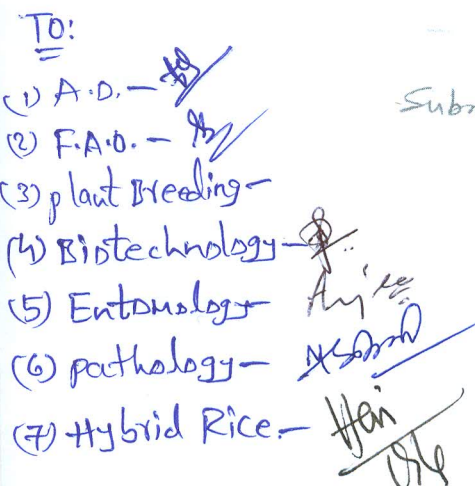 TO:
(1) A.D. -
Subm
(2) F.A.O. -
(3) plant Breeding -
(4) Biotechnology -
(5) Entomology -
(6) pathology -
(7) Hybrid Rice. -